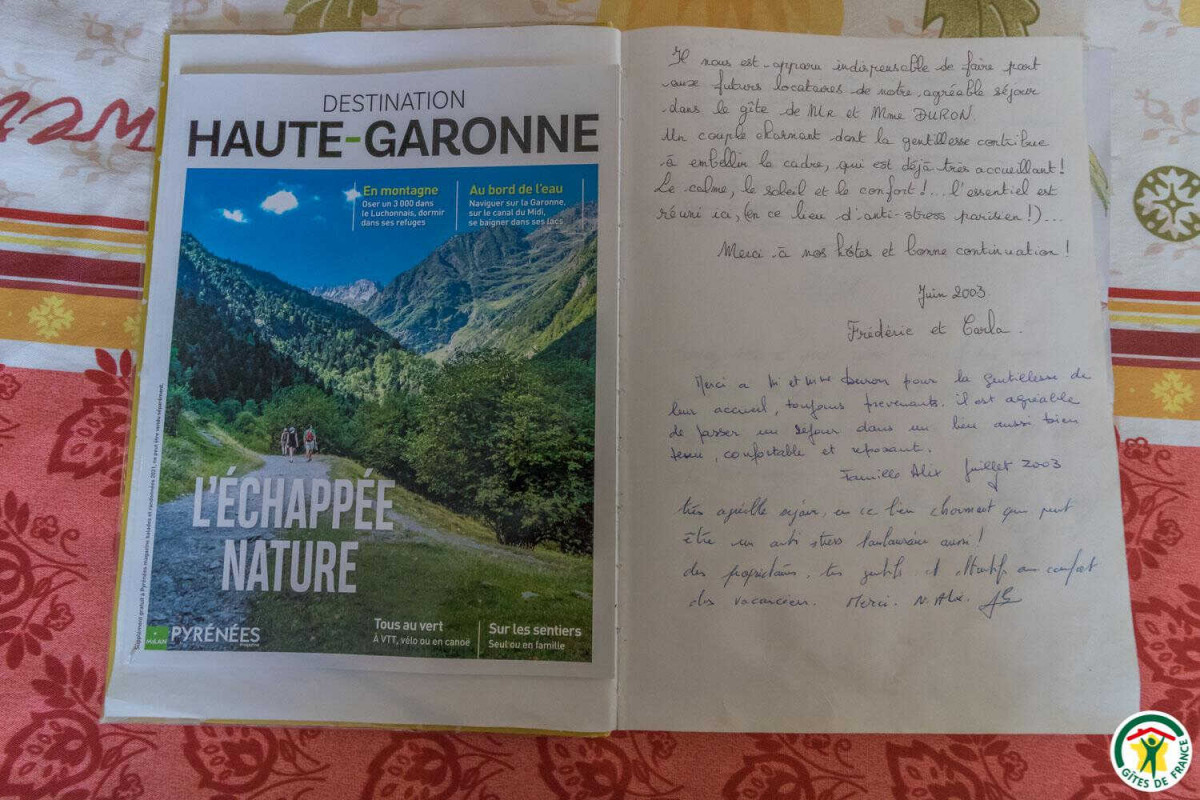 DESTINATION
HAUTE-GARONNE
En montagne
Oser un 3 000 dans
le Luchonnais, dormir
dans ses refuges
Au bord de l'eau
Naviguer sur la Garonne,
sur le canal du Midi,
se baigner dans ses lacs
L'ÉCHAPPÉE
NATURE
Tous au vert
À VTT, vélo ou en canoë
Sur les sentiers
Seul ou en famille
MILAN
PYRÉNÉES
magazine
Supplément gratuit à Pyrénées magazine balades et randonnées 2021, ne peut être vendu séparément.
Il nous est apparu indispensable de faire part
aux futurs locataires de notre agréable séjour
dans le gîte de Mr et Mme DURON.
Un couple charmant dont la gentillesse contribue
à embellir la cadre, qui est déjà très accueillant!
Le calme, le soleil et le confort!... l'essentiel est
réuni ici, (en ce lieu d'anti-stress parisien!)...
Merci à nos hôtes et bonne continuation!
Juin 2003
Frédéric et Carla.
Merci a M et Mme Duron pour la gentillesse de
leur accueil, toujours prevenants. il est agréable
de passer un sejour dans un lieu aussi bien
tenu, confortable et reposant.
Famille Alix Juillet 2003
très agréable séjour, en ce lieu charmant qui peut
être un anti stress toulousain aussi!
des propriétaires très gentils et attentifs au confort
des vacanciers. Merci. N. Alix.
GÎTES DE FRANCE